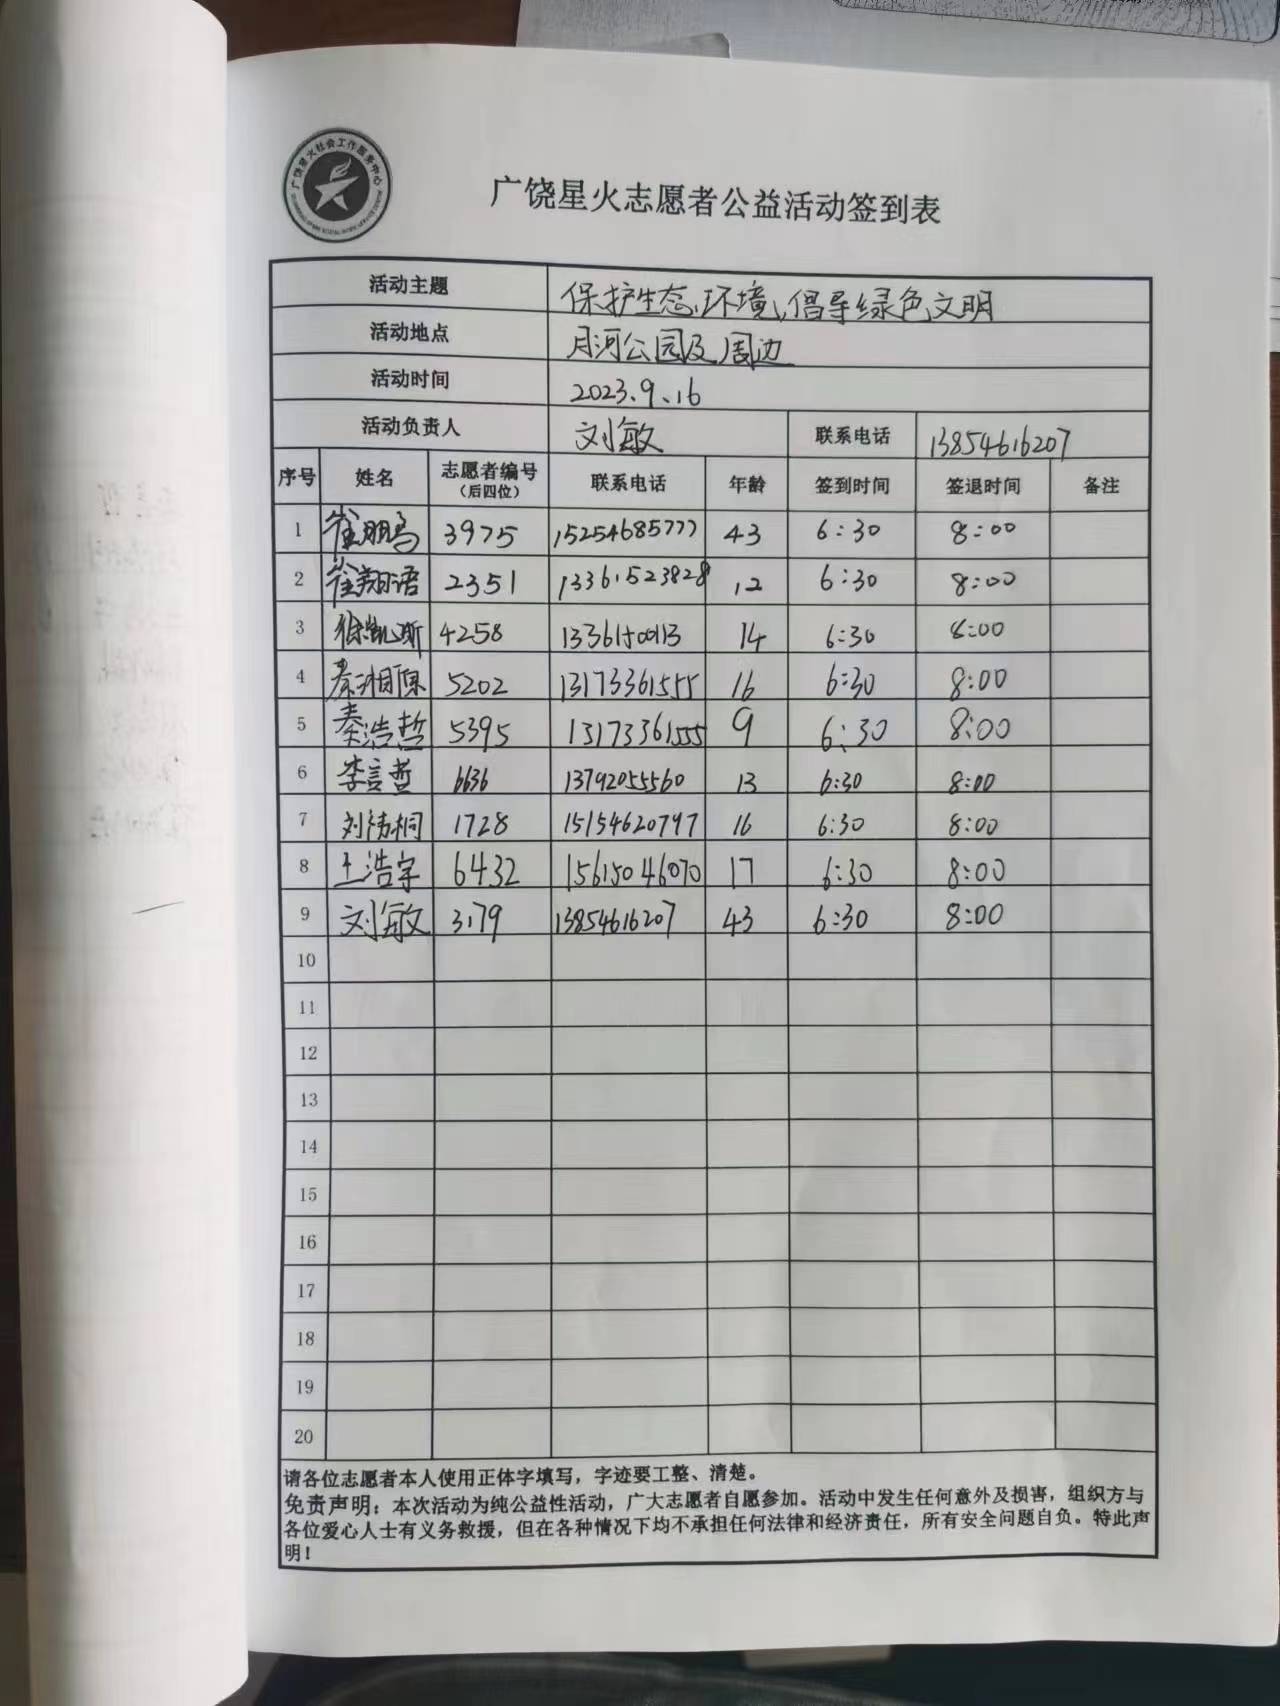 广饶星火社会工作服务中心
广饶星火志愿者公益活动签到表
活动主题 保护生态环境,倡导绿色文明
活动地点 月河公园及周边
活动时间 2023.9.16
活动负责人 刘敏 联系电话 13854616207
序号 姓名 志愿者编号（后四位） 联系电话 年龄 签到时间 签退时间 备注
1 崔鹏高 3975 15254685777 43 6:30 8:00
2 崔翔语 2351 13361523828 12 6:30 8:00
3 徐凯斯 4258 13361500113 14 6:30 8:00
4 秦湘原 5202 13173361555 16 6:30 8:00
5 秦浩哲 5395 13173361555 9 6:30 8:00
6 李言哲 6636 13792055560 13 6:30 8:00
7 刘祎桐 1728 15154620797 16 6:30 8:00
8 王浩宇 6432 15615046070 17 6:30 8:00
9 刘敏 3179 13854616207 43 6:30 8:00
10
11
12
13
14
15
16
17
18
19
20
请各位志愿者本人使用正体字填写，字迹要工整、清楚。
免责声明：本次活动为纯公益性活动，广大志愿者自愿参加。活动中发生任何意外及损害，组织方与
各位爱心人士有义务救援，但在各种情况下均不承担任何法律和经济责任，所有安全问题自负。特此声
明！